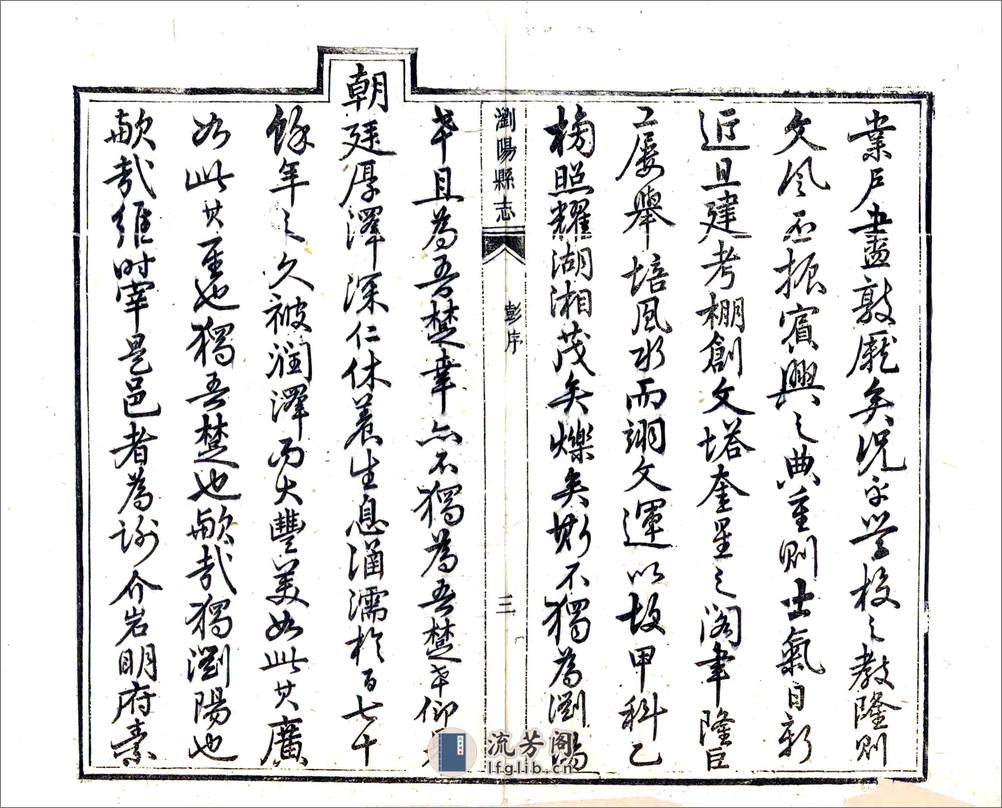 業戶盡敦龐矣況乎學校之教隆則
文風丕振賓興之典重則士氣自新
近且建考棚創文塔奎星之閣聿隆巨
工屢舉培風水而翊文運以故甲科乙
榜照耀湖湘茂矣爍矣斯不獨為瀏陽
瀏陽縣志
彭序
三
幸且為吾楚幸亦不獨為吾楚幸仰
朝廷厚澤深仁休養生息涵濡於百七十
餘年之久被潤澤而大豐美如此其廣
如此其至也獨吾楚也歟哉獨瀏陽也
歟哉維時宰是邑者為謝介岩明府素
流芳閣
lfglib.cn